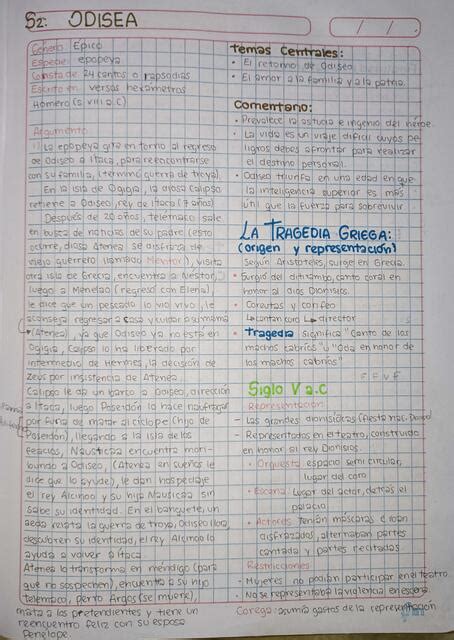 S2: ODISEA
Género: Épico
Especie: epopeya
Consta de: 24 cantos o rapsodias
Escrito en: versos hexámetros
Homero (s. VIII a.C)
Argumento
La epopeya gira en torno al regreso
de Odiseo a Ítaca, para reencontrarse
con su familia, (terminó guerra de troya).
En la isla de Ogigia, la diosa Calipso
retiene a Odiseo, rey de Ítaca (7 años)
Después de 20 años, telémaco sale
en busca de noticias de su padre (esto
ocurre, diosa Atenea se disfraza de
viejo guerrero llamado Mentor), visita
otra isla de Grecia, encuentra a Néstor,
luego a Menelao (regresó con Elena),
le dice que un pescado lo vio vivo, le
aconseja regresar a casa y cuidar a su mamá
(Atenea), ya que Odiseo ya no está en
Ogigia, Calipso lo ha liberado por
intermedio de Hermes, la decisión de
Zeus por insistencia de Atenea.
Calipso le da un barco a Odiseo, dirección
a Ítaca, luego Poseidón lo hace naufragar
por furia de matar al cíclope (hijo de
Poseidón), llegando a la isla de los
feacios, Náusicaa encuentra mori-
bundo a Odiseo, (Atenea en sueños le
dice que lo ayude), le dan hospedaje
el rey Alcinoo y su hija Náusicaa sin
saber su identidad. En el banquete, un
aeda relata la guerra de troya, Odiseo llora,
descubren su identidad, el rey Alcinoo lo
ayuda a volver a Ítaca.
Atenea lo transforma en méndigo (para
que no sospechen), encuentra a su hijo
telémaco, perro Argos (se muere),
mata a los pretendientes y tiene un
reencuentro feliz con su esposa
Penélope.
temas Centrales:
• El retorno de Odiseo
• El amor a la familia y a la patria.
Comentario:
• Prevalece la astucia e ingenio del héroe.
• La vida es un viaje difícil cuyos pe-
ligros debes afrontar para realizar
el destino personal.
• Odiseo triunfa en una edad en que
la inteligencia superior es más
útil que la fuerza para sobrevivir.
LA TRAGEDIA GRIEGA:
(origen y representación)
Según Aristóteles, surge en Grecia.
• Surgió del ditirambo, canto coral en
honor al dios Dionisios.
• Coreutas y corifeo
↳ cantan coro ↳ director
• Tragedia significa "Canto de los
machos cabríos" u "Oda en honor de
los machos cabríos"
Siglo V a.C
Representación:
- Las grandes dionisiacas
- Representados en el teatro, construido
en honor al rey Dionisios.
• Orquesta: espacio semi circular,
lugar del coro
• Escena: Lugar del actor, detrás el
palacio
• Actores: Tenían máscaras e iban
disfrazados, alternaban partes
cantada y partes recitadas.
Restricciones
- Mujeres no podían participar en el teatro
- No se representaba la violencia en escena.
Corega: asumía gastos de la representación